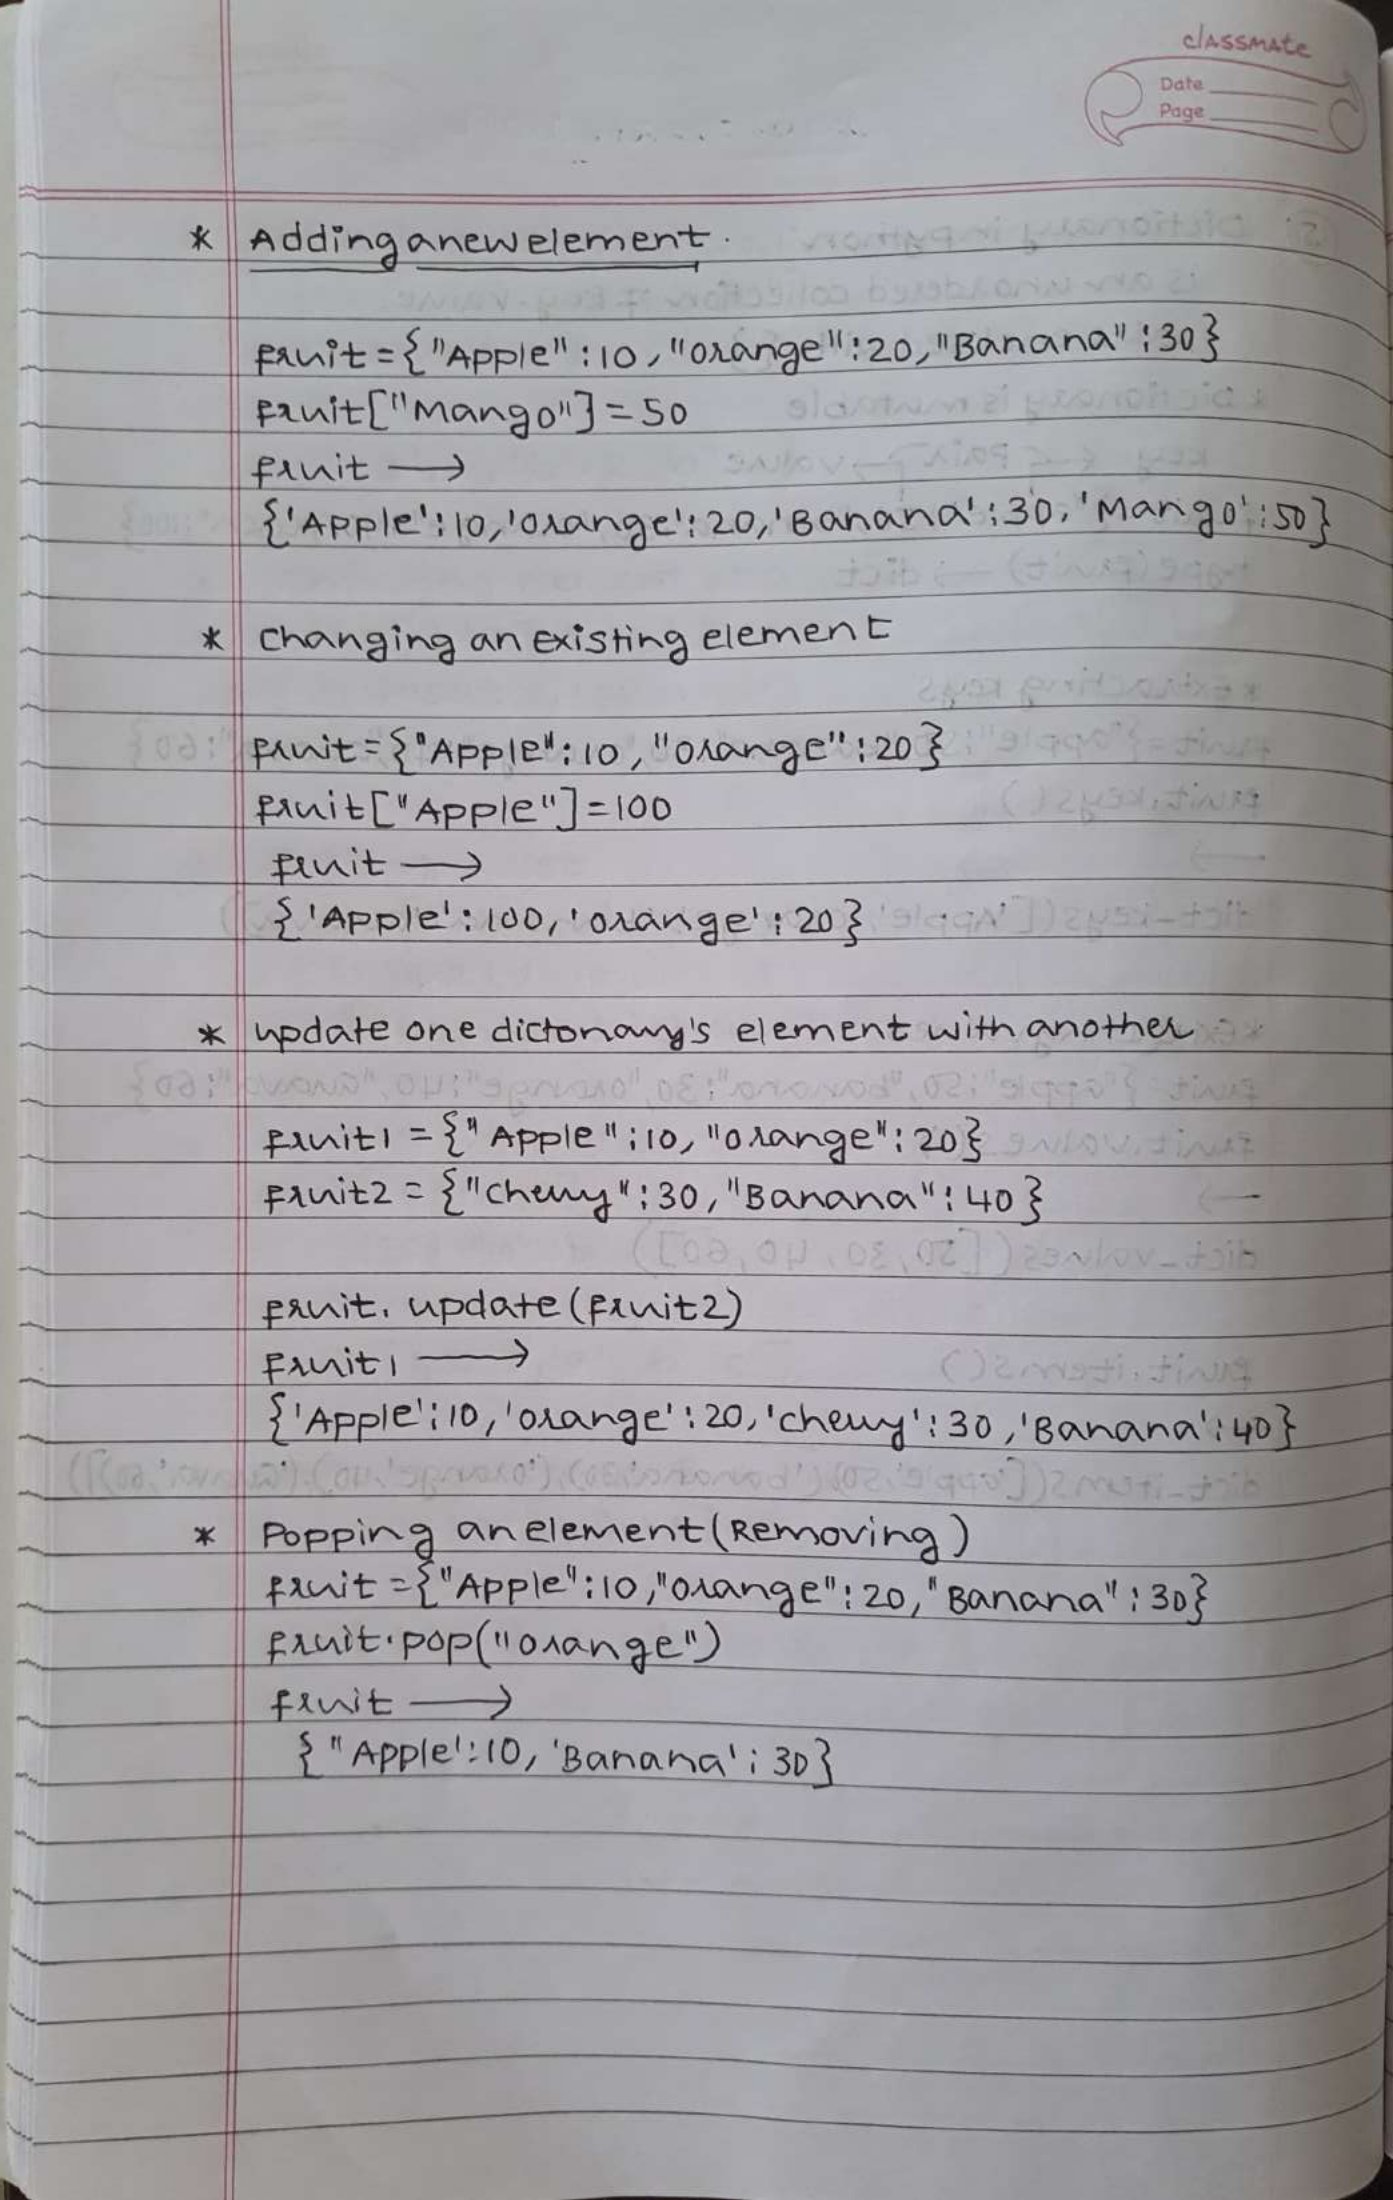 classmate
Date
Page
* Adding a new element.
fruit = {"Apple":10, "orange":20, "Banana":30}
fruit["Mango"] = 50
fruit ⟶
{'Apple':10, 'orange':20, 'Banana':30, 'Mango':50}
* changing an existing element
fruit = {"Apple":10, "orange":20}
fruit["Apple"] = 100
fruit ⟶
{'Apple':100, 'orange':20}
* update one dictonary's element with another
fruit1 = {"Apple":10, "orange":20}
fruit2 = {"cherry":30, "Banana":40}
fruit. update(fruit2)
fruit1 ⟶
{'Apple':10, 'orange':20, 'cherry':30, 'Banana':40}
* Popping an element (Removing)
fruit = {"Apple":10, "orange":20, "Banana":30}
fruit.pop("orange")
fruit ⟶
{"Apple':10, 'Banana':30}